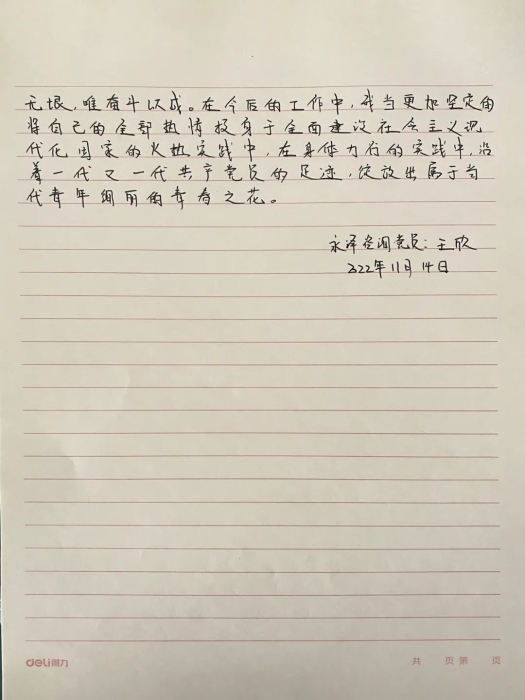 无垠,唯奋斗以成。在今后的工作中,我当更加坚定的
将自己的全部热情投身于全面建设社会主义现
代化国家的火热实践中,在身体力行的实践中,沿
着一代又一代共产党员的足迹,绽放出属于当
代青年绚丽的青春之花。
永泽空调党员:王欣
2022年11月14日
deli得力
共 页 第 页